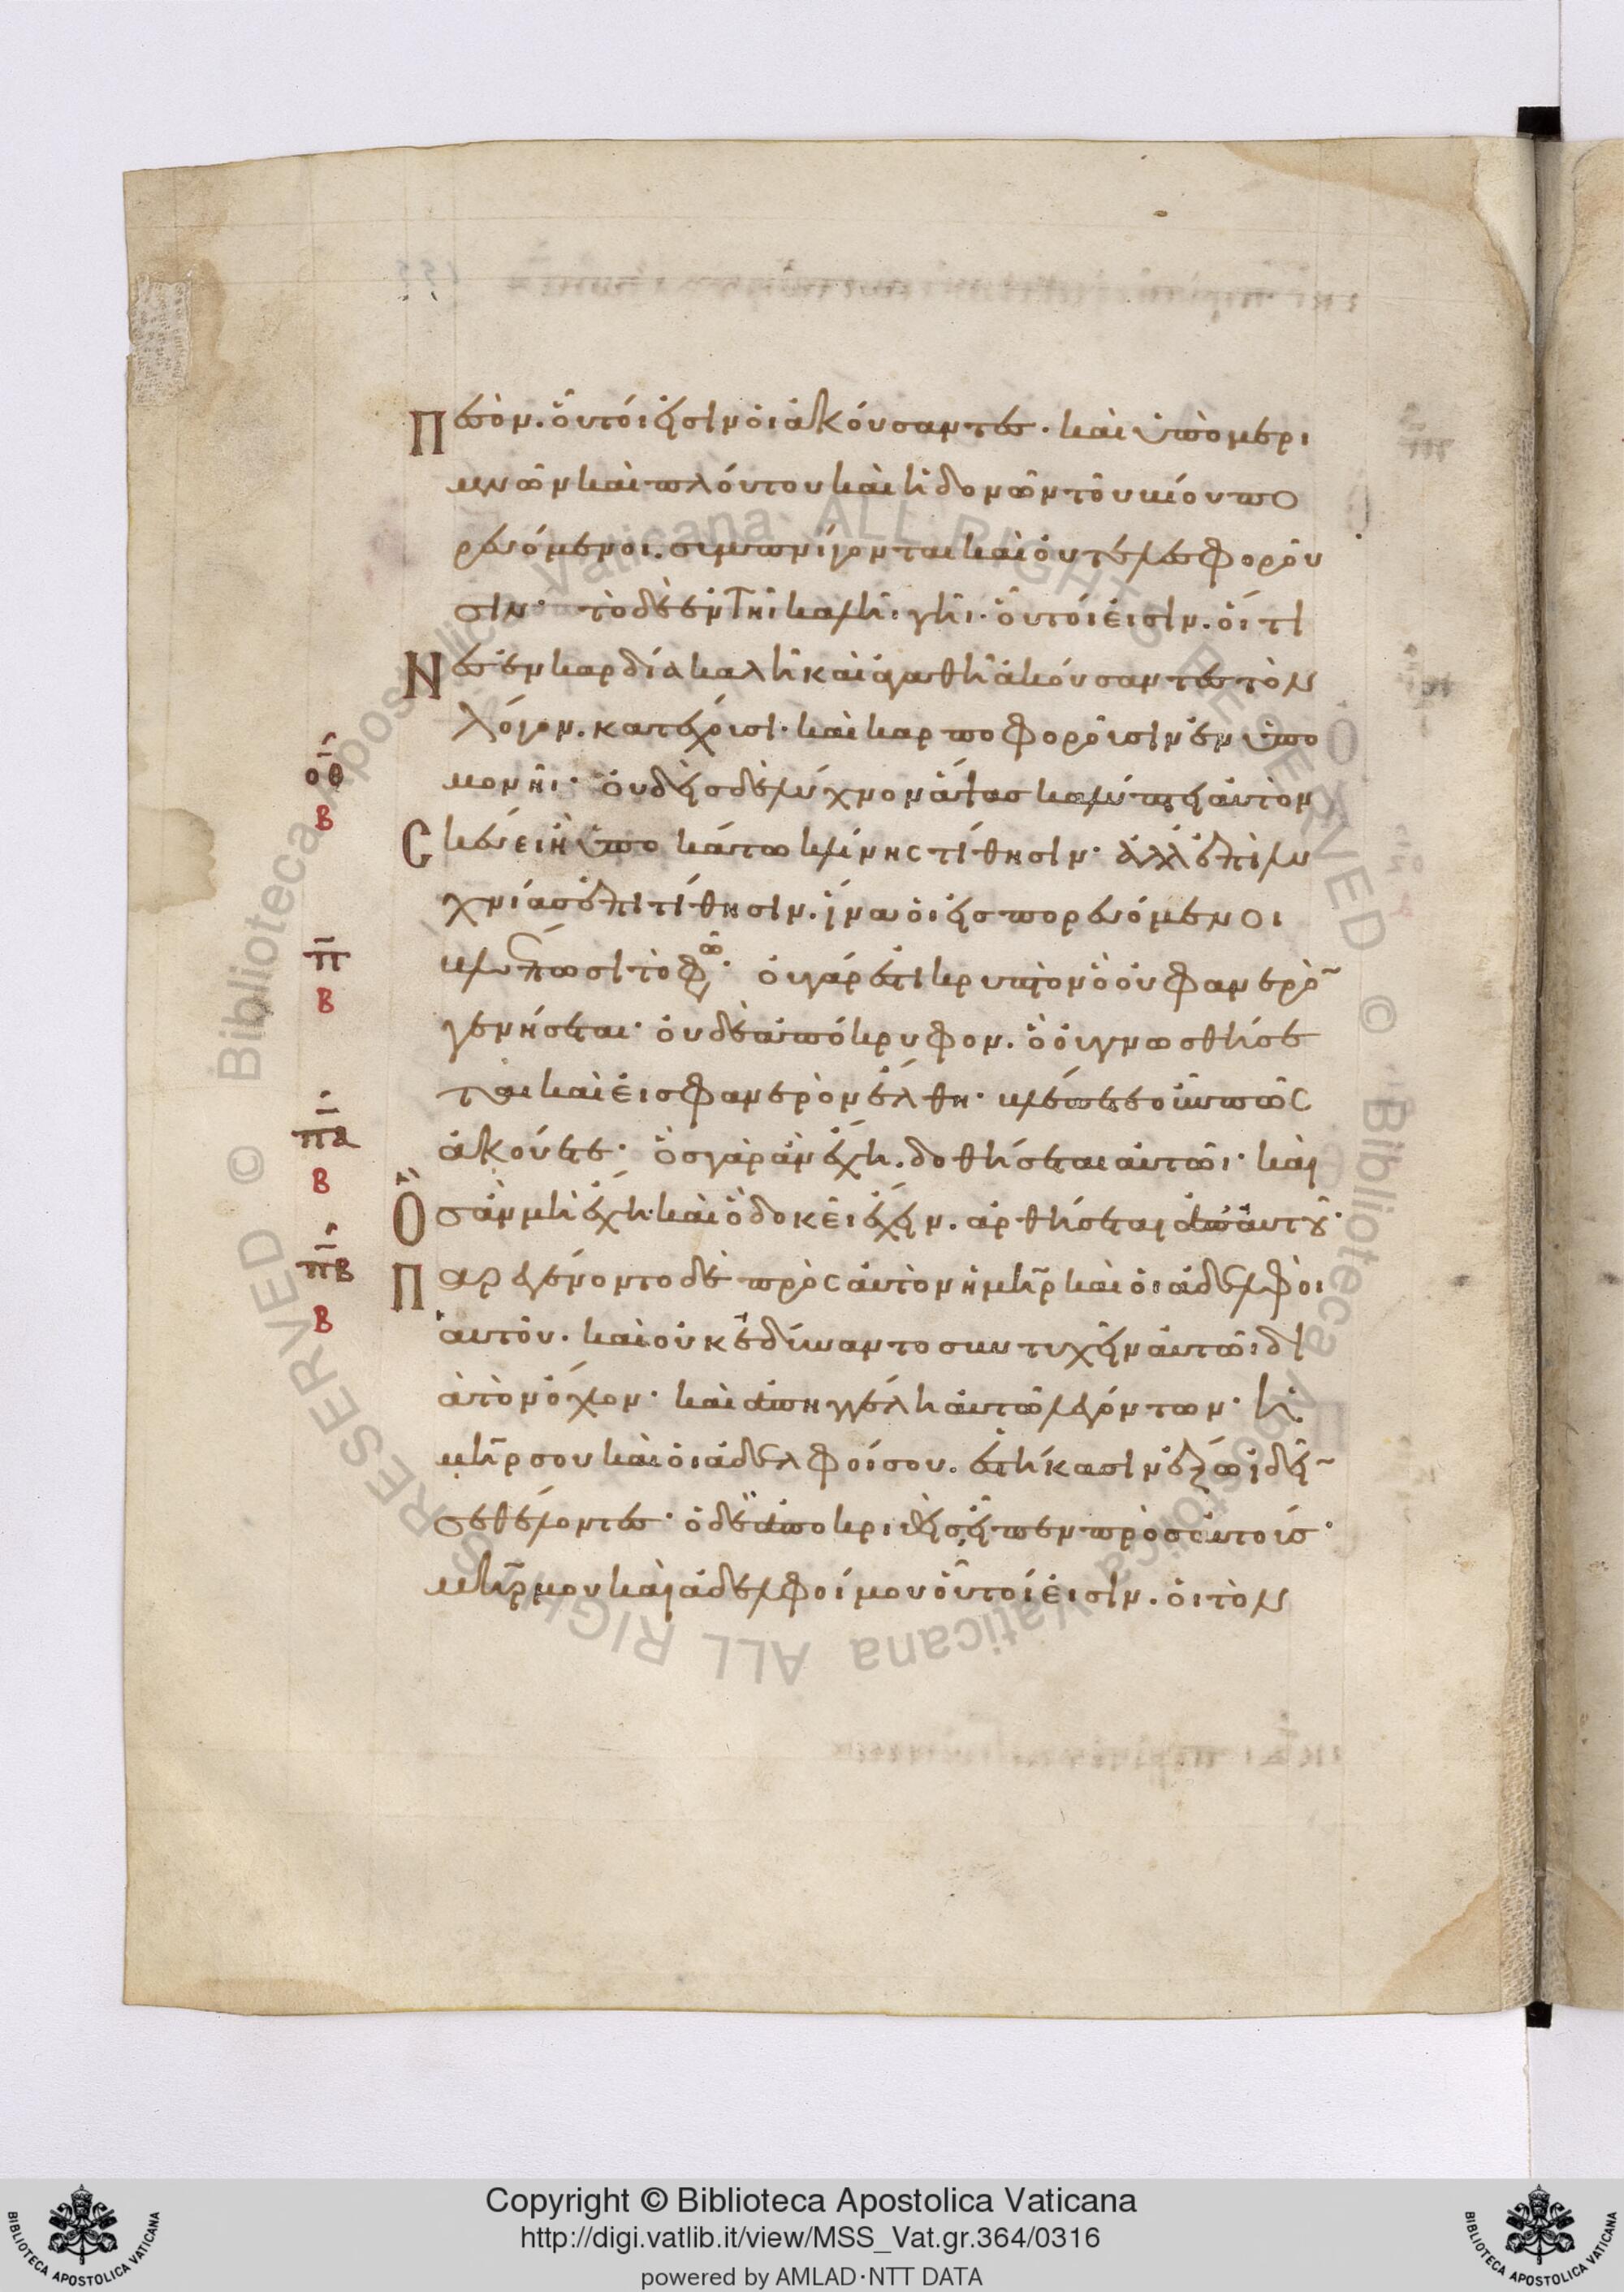 Πεσὸν. οὗτοί εἰσιν οἱ ἀκούσαντες· καὶ ὑπὸ μερι
μνῶν καὶ πλούτου καὶ ἡδονῶν τοῦ βίου πο
ρευόμενοι. συμπνίγονται καὶ οὐ τελεσφοροῦ
σιν· τὸ δὲ ἐν τῆι καλῆι γῆι· οὗτοί εἰσιν. οἵ τι
Νες ἐν καρδία καλῆ καὶ ἀγαθῆ ἀκούσαντες τὸν
λόγον. κατέχουσι· καὶ καρποφοροῦσιν ἐν ὑπο
μονῆι· οὐδεὶς δὲ λύχνον ἅψας καλύπτει αὐτὸν
Σκεύει ἢ ὑποκάτω κλίνης τίθησιν· ἀλλ' ἐπὶ λυ
χνίας ἐπιτίθησιν. ἵνα οἱ εἰσπορευόμενοι
βλέπωσι τὸ φῶ· οὐ γάρ ἐστι κρυπτὸν ὃ οὐ φανερὸ
γενήσεται· οὐδὲ ἀπόκρυφον. ὃ οὐ γνωσθήσε
ται καὶ εἰς φανερὸν ἔλθη· βλέπετε οὖν πῶς
ἀκούετε· ὃς γὰρ ἂν ἔχη. δοθήσεται αὐτῶι· καὶ
Ὃς ἂν μὴ ἔχη· καὶ ὃ δοκεῖ ἔχειν. ἀρθήσεται ἀπ' αὐτοῦ·
Παρεγένοντο δὲ πρὸς αὐτὸν ἡ μηρ καὶ οἱ ἀδελφοὶ
αὐτοῦ. καὶ οὐκ ἐδύναντο συντυχεῖν αὐτῶι δι
ὰ τὸν ὄχλον· καὶ ἀπηγγέλη αὐτῶ λεγόντων· ἡ
μηρ σου καὶ οἱ ἀδελφοί σου. ἑστήκασιν ἔξω ἰδεῖ
σε θέλοντες· ὁ δὲ ἀποκριθεὶς εἶπεν πρὸς αὐτούς·
μηρ μου καὶ ἀδελφοί μου οὗτοί εἰσιν. οἱ τὸν
οθ
β
π
β
πα
β
πβ
β
© Biblioteca Apostolica Vaticana ALL RIGHTS RESERVED
Copyright © Biblioteca Apostolica Vaticana
http://digi.vatlib.it/view/MSS_Vat.gr.364/0316
powered by AMLAD·NTT DATA
BIBLIOTECA APOSTOLICA VATICANA
BIBLIOTECA APOSTOLICA VATICANA